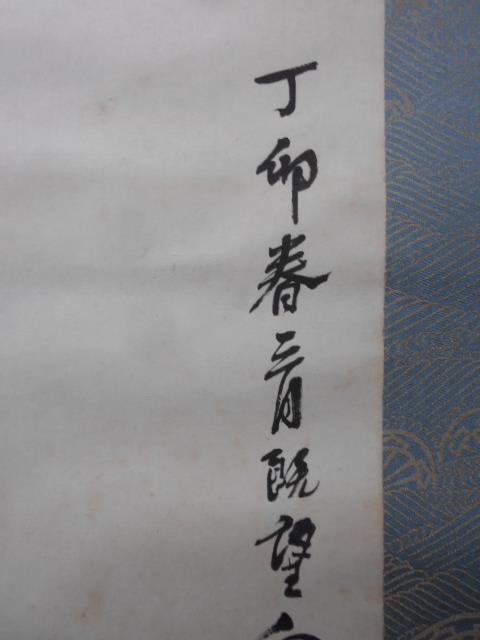 丁卯春三月既望